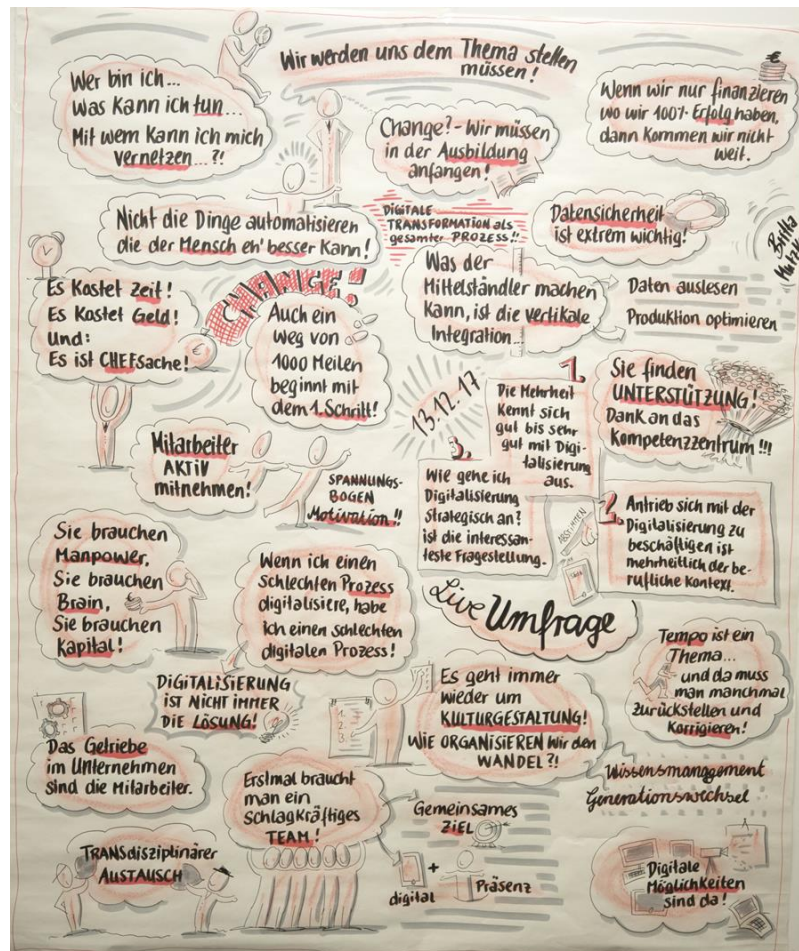 Wir werden uns dem Thema stellen
müssen!
Wer bin ich...
Was kann ich tun...
Mit wem kann ich mich
vernetzen...?!
€
Wenn wir nur finanzieren
wo wir 100% Erfolg haben,
dann kommen wir nicht
weit.
Change? - Wir müssen
in der Ausbildung
anfangen!
Nicht die Dinge automatisieren
die der Mensch eh' besser kann!
DIGITALE
TRANSFORMATION als
gesamter PROZESS!!
Datensicherheit
ist extrem wichtig!
Britta
Es kostet Zeit!
Es kostet Geld!
Und:
Es ist CHEFsache!
€
CHANGE!
Auch ein
Weg von
1000 Meilen
beginnt mit
dem 1. Schritt!
Was der
Mittelständler machen
kann, ist die vertikale
Integration...
Daten auslesen
Produktion optimieren
13.12.17
1.
Die Mehrheit
kennt sich
gut bis sehr
gut mit Digi-
talisierung
aus.
Sie finden
UNTERSTÜTZUNG!
Dank an das
Kompetenzzentrum!!!
Mitarbeiter
AKTIV
mitnehmen!
SPANNUNGS-
BOGEN
Motivation!!
3.
Wie gehe ich
Digitalisierung
strategisch an?
ist die interessan-
teste Fragestellung.
ABSTIMMEN
2.
Antrieb sich mit der
Digitalisierung zu
beschäftigen ist
mehrheitlich der be-
rufliche Kontext.
Live Umfrage
Sie brauchen
Manpower,
Sie brauchen
Brain,
Sie brauchen
Kapital!
Wenn ich einen
schlechten Prozess
digitalisiere, habe
ich einen schlechten
digitalen Prozess!
DIGITALISIERUNG
IST NICHT IMMER
DIE LÖSUNG!
1.
2.
3.
Es geht immer
wieder um
KULTURGESTALTUNG!
WIE ORGANISIEREN wir den
WANDEL?!
Tempo ist ein
Thema...
und da muss
man manchmal
zurückstellen und
korrigieren!
Das Getriebe
im Unternehmen
sind die Mitarbeiter.
Erstmal braucht
man ein
schlagkräftiges
TEAM!
Gemeinsames
ZIEL
Wissensmanagement
Generationswechsel
TRANSdisziplinärer
AUSTAUSCH
digital
+
Präsenz
Digitale
Möglichkeiten
sind da!